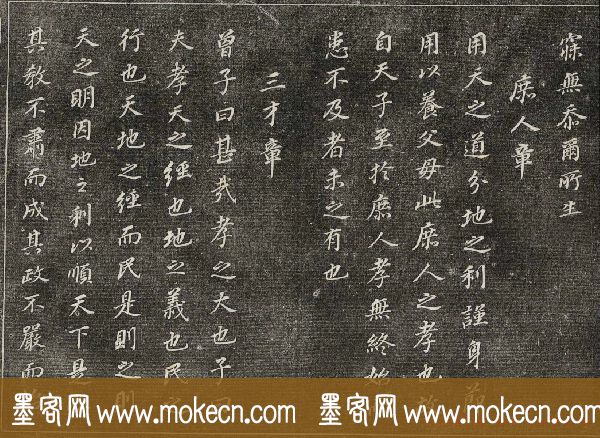 寐無忝爾所生
庶人章
用天之道分地之利謹身節
用以養父母此庶人之孝也故
自天子至於庶人孝無終始
患不及者未之有也
三才章
曾子曰甚哉孝之大也子曰
夫孝天之經也地之義也民之
行也天地之經而民是則之則
天之明因地之利以順天下是
其教不肅而成其政不嚴而
墨客网 www.mokecn.com 墨客网 www.mokecn.com